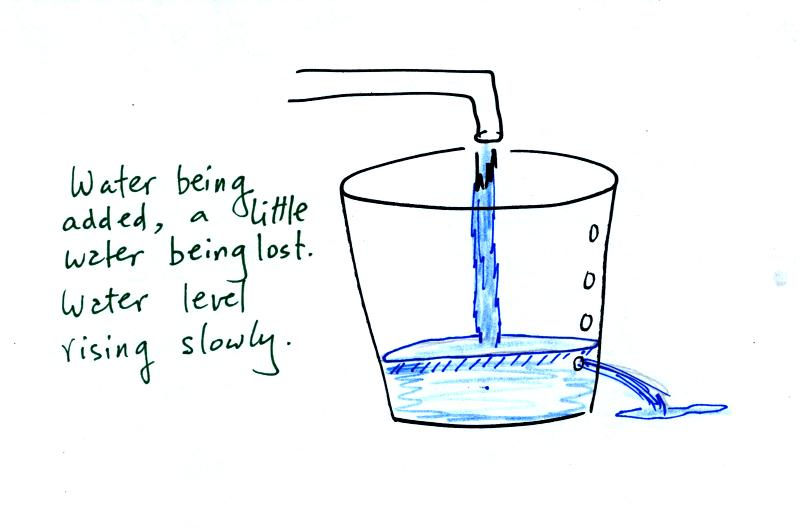 Water being
added, a little
water being lost.
Water level
rising slowly.